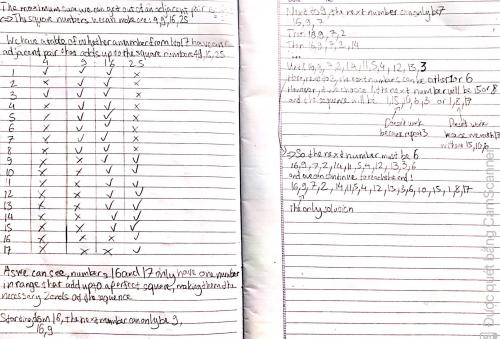 The maximum sum we can get out of an adjacent pair is
⇒ The square numbers we can make are: 4, 9, 16, 25
We have a table of whether a number from 1 to 17 have one
adjacent pair that adds up to the square numbers 4, 9, 16, 25
4 9 16 25
1 ✓ ✓ ✓ x
2 ✓ ✓ x
3 ✓ ✓ ✓ x
4 x ✓ ✓ x
5 x ✓ ✓ x
6 x ✓ ✓ x
7 x ✓ ✓ x
8 x ✓ ✓ ✓
9 x x ✓ ✓
10 x x ✓ ✓
11 x x ✓ ✓
12 x x ✓ ✓
13 x x ✓ ✓
14 x x ✓ ✓
15 x x ✓ ✓
16 x x x ✓
17 x x x ✓
As we can see, numbers 16 and 17 only have one number
in range that add up to a perfect square, making them the
necessary 2 ends of the sequence
Starting from 16, the next number can only be 9,
16, 9
Next to 9, the next number can only be 7
16, 9, 7
Then 16, 9, 7, 2
Then 16, 9, 7, 2, 14
Until 16, 9, 7, 2, 14, 11, 5, 4, 12, 13, 3
Here, next to 3, the next numbers can be either 1 or 6
However, if we choose 1, the next number will be 15 or 8
and the sequence will be 1, 15, 10, 6, 3 or 1, 8, 17
Doesn't work
because repeat 3
Doesn't work
because we reach 17
without 15, 10, 6
⇒ So the next number must be 6
16, 9, 7, 2, 14, 11, 5, 4, 12, 13, 3, 6
and we can continue to reach the end!
16, 9, 7, 2, 14, 11, 5, 4, 12, 13, 3, 6, 10, 15, 1, 8, 17
The only solution
Được quét bằng CamScanner